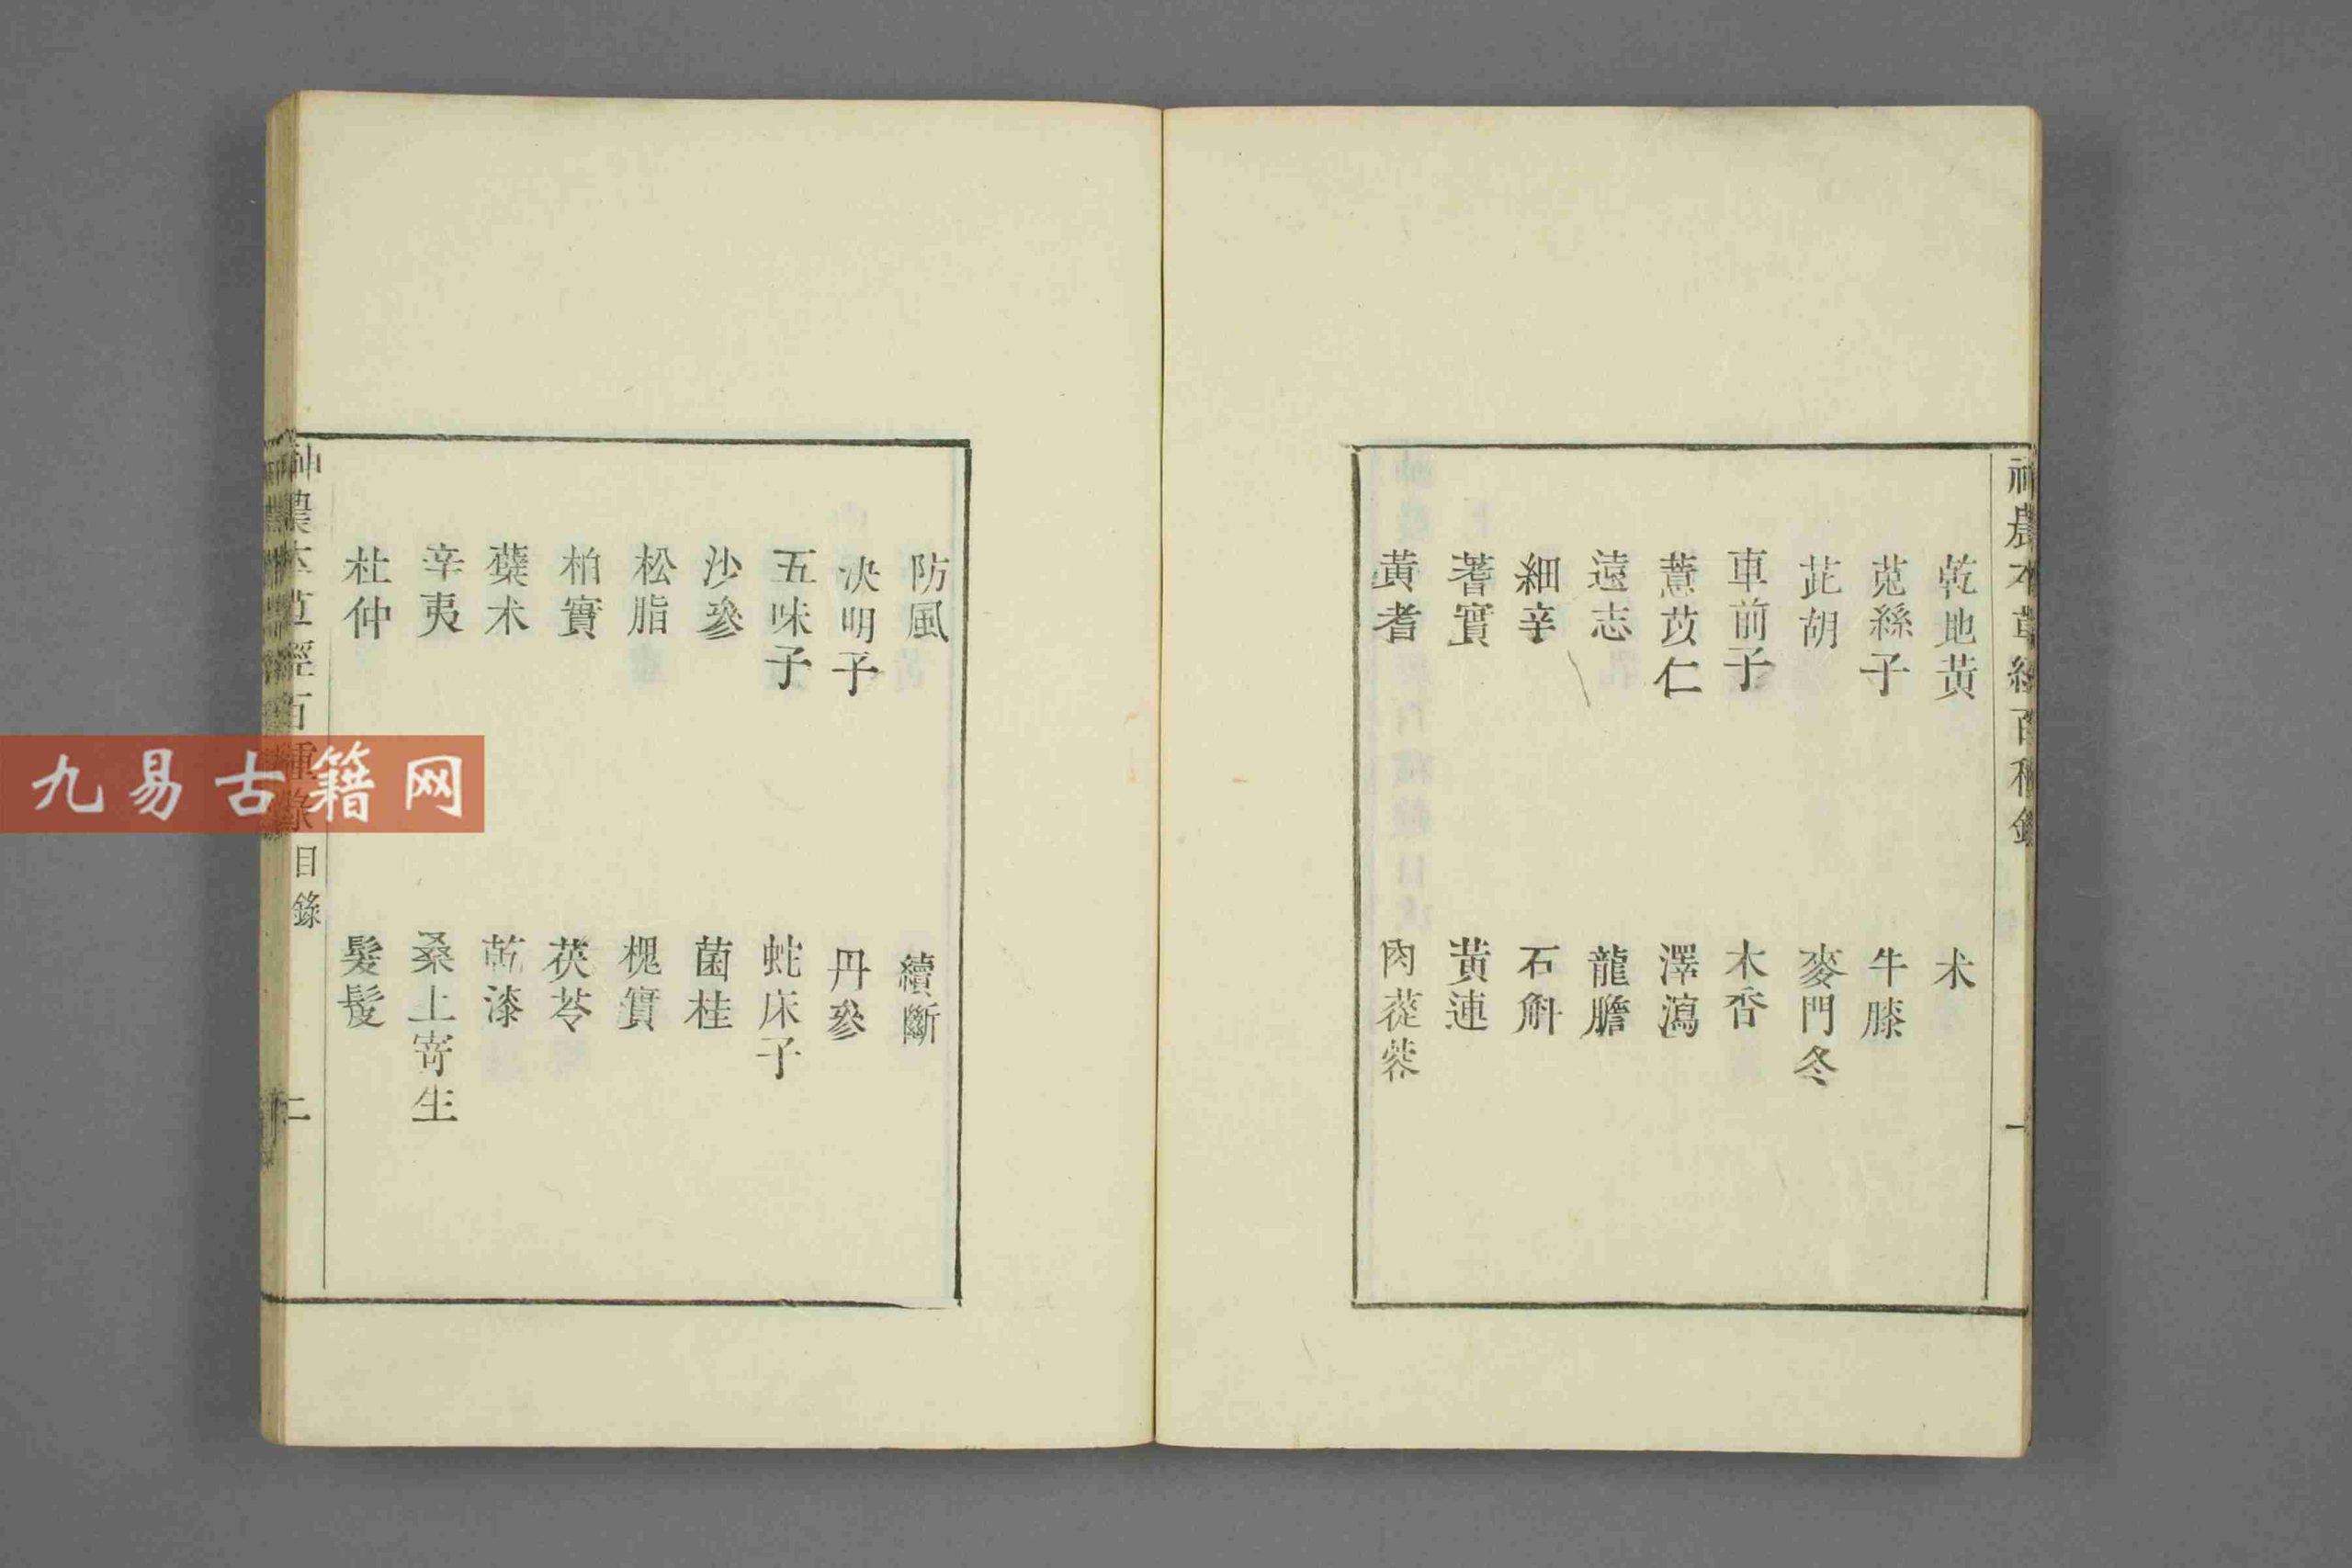 神農本草經百種錄
一
乾地黃　朮
菟絲子　牛膝
茈胡　麥門冬
車前子　木香
薏苡仁　澤瀉
遠志　龍膽
細辛　石斛
蓍實　黃連
黃耆　肉蓯蓉
防風　續斷
決明子　丹參
五味子　蛇床子
沙參　菌桂
松脂　槐實
柏實　茯苓
蘗木　乾漆
辛夷　桑上寄生
杜仲　髮髲
神農本草經百種錄　目錄
二
九易古籍网